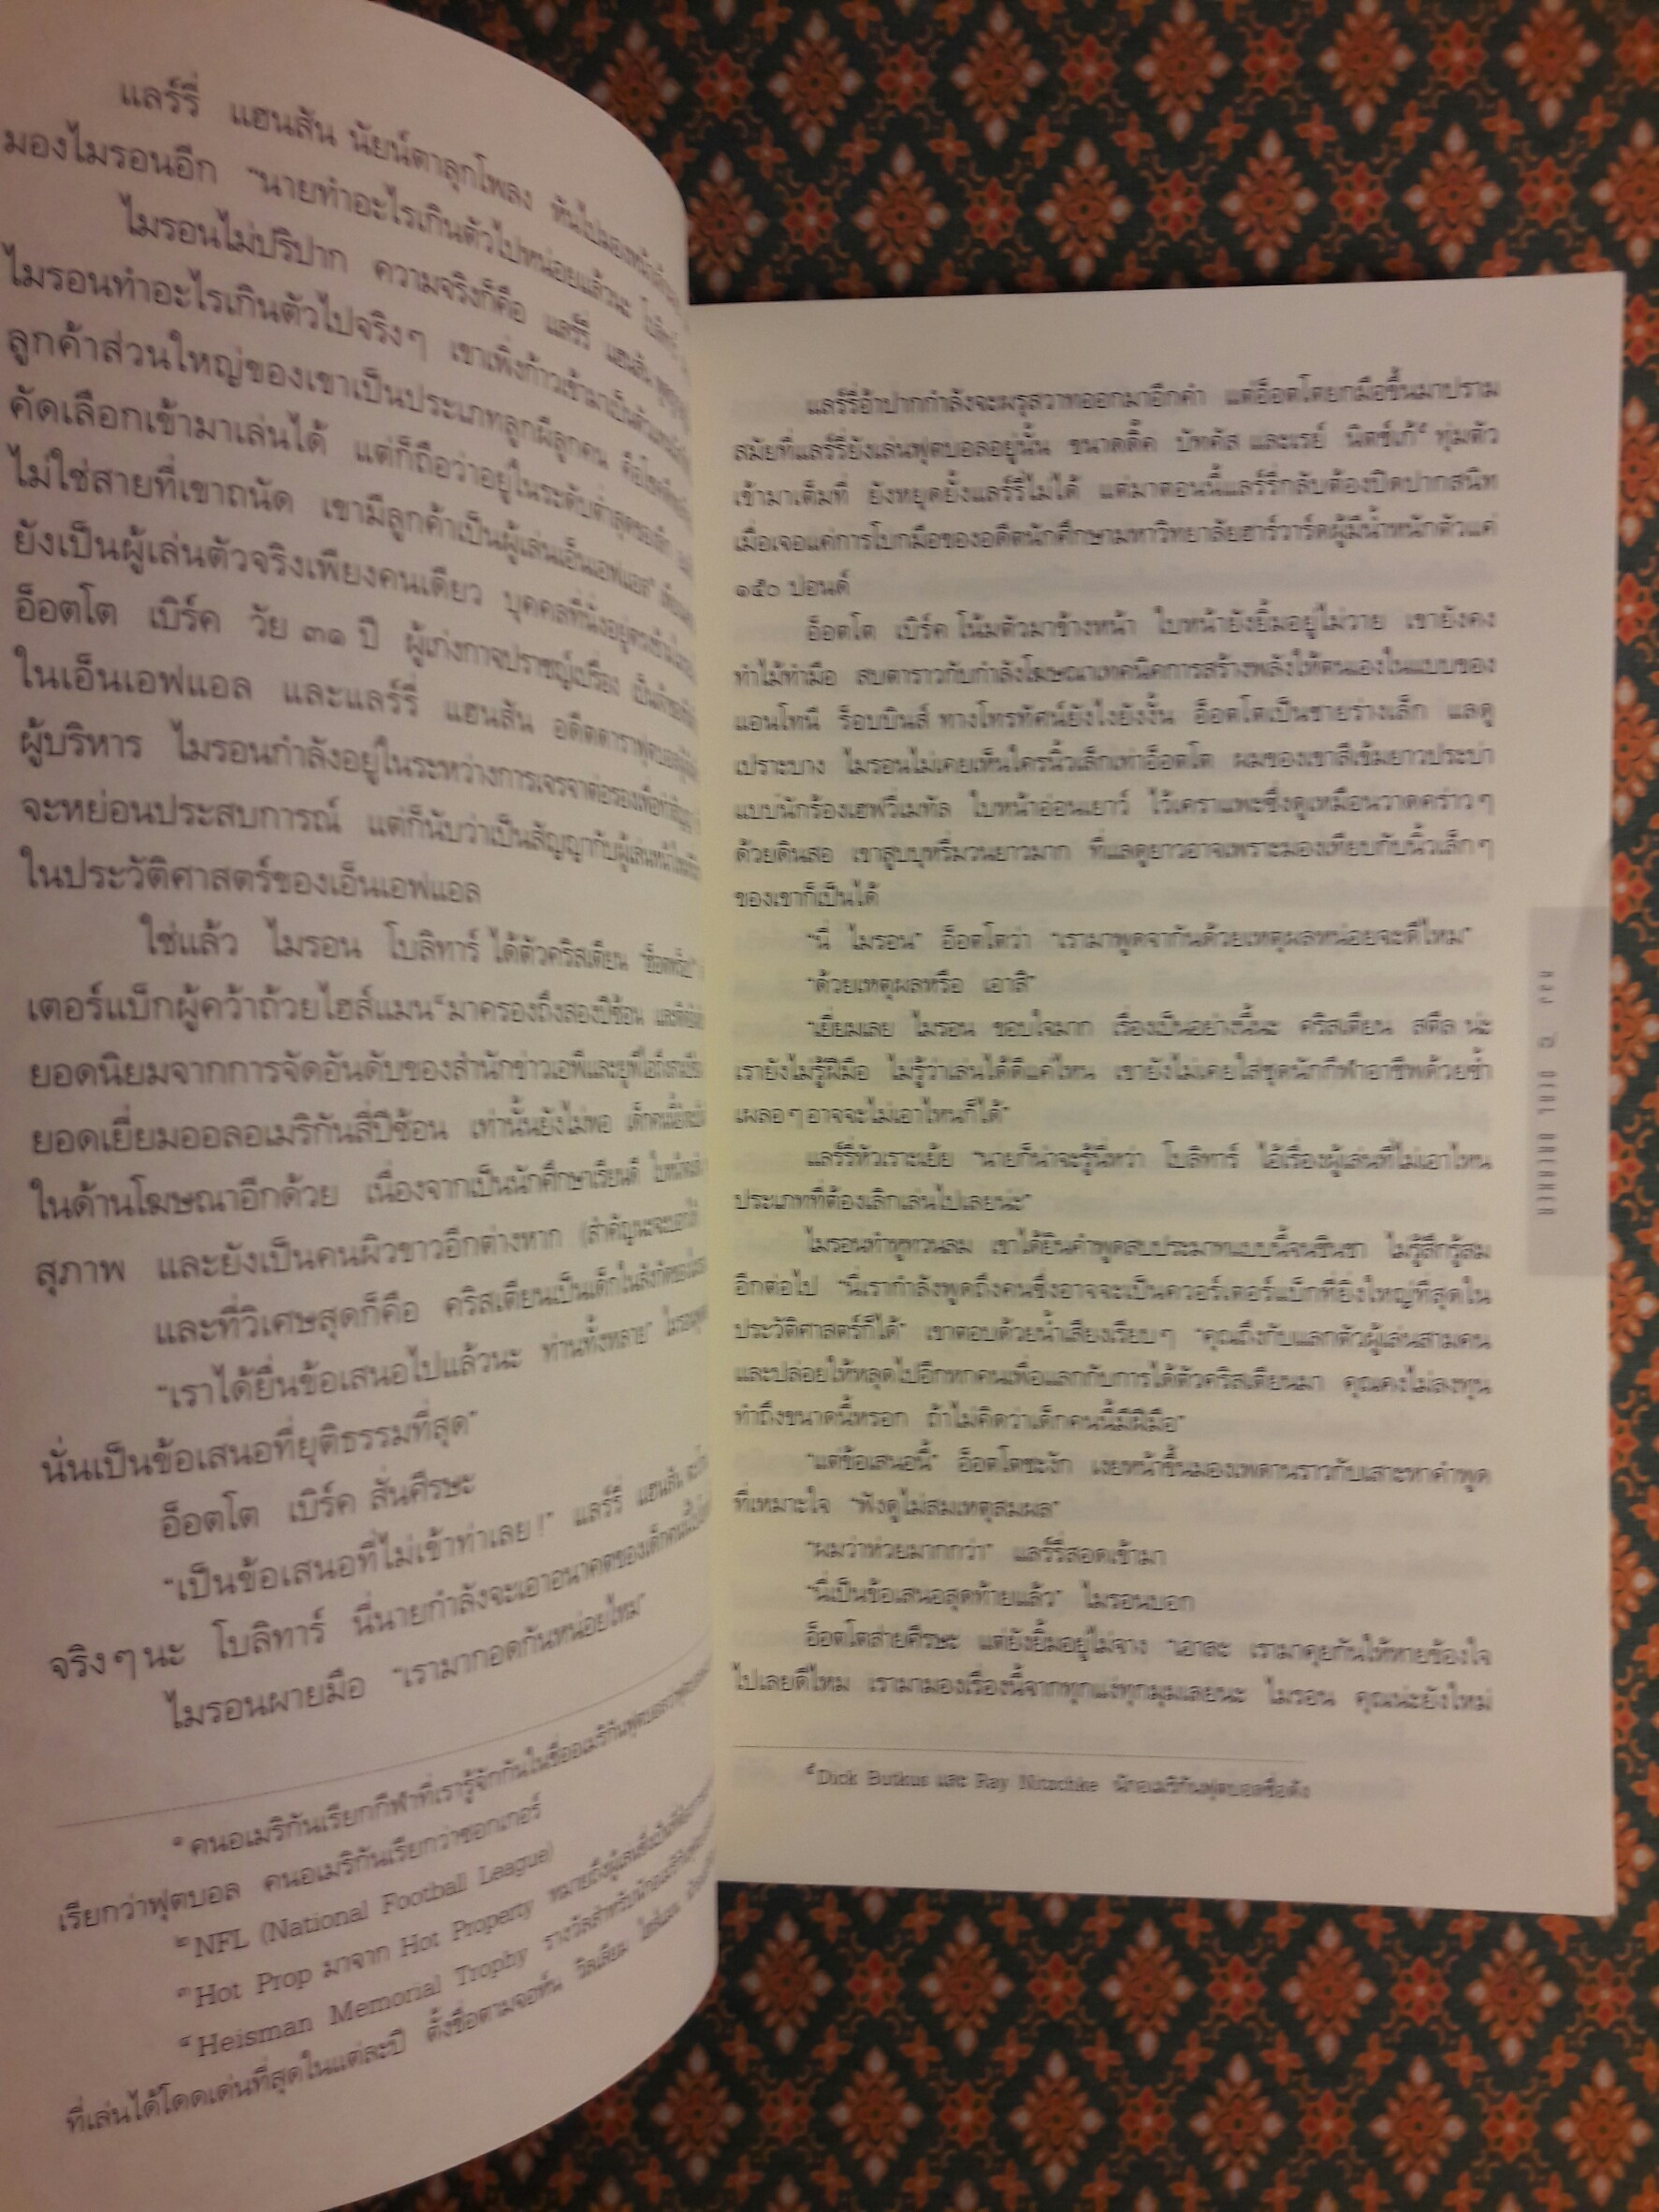 แลร์รี่ แฮนสัน นัยน์ตาลุกโพลง หันไปมองหน้า
มองไมรอนอีก "นายทำอะไรเกินตัวไปหน่อยแล้วนะ
ไมรอนไม่ปริปาก ความจริงก็คือ แลร์รี่ แฮนสัน
ไมรอนทำอะไรเกินตัวไปจริงๆ เขาเพิ่งก้าวเข้ามาเป็น
ลูกค้าส่วนใหญ่ของเขาเป็นประเภทลูกผีลูกคน
คัดเลือกเข้ามาเล่นได้ แต่ก็ถือว่าอยู่ในระดับต่ำสุดของ
ไม่ใช่สายที่เขาถนัด เขามีลูกค้าเป็นผู้เล่นเอ็นเอฟแอล๒
ยังเป็นผู้เล่นตัวจริงเพียงคนเดียว บุคคลที่นั่งอยู่
อ็อตโต เบิร์ค วัย ๓๑ ปี ผู้เก่งกาจปราชญ์เปรื่อง
ในเอ็นเอฟแอล และแลร์รี่ แฮนสัน อดีตดาราฟุตบอล
ผู้บริหาร ไมรอนกำลังอยู่ในระหว่างการเจรจาต่อรองเพื่อทำสัญญา
จะหย่อนประสบการณ์ แต่ก็นับว่าเป็นสัญญากับผู้เล่นหน้าใหม่
ในประวัติศาสตร์ของเอ็นเอฟแอล
ใช่แล้ว ไมรอน โบลิทาร์ ได้ตัวคริสเตียน
เตอร์แบ็กผู้คว้าถ้วยไฮส์แมน๔มาครองถึงสองปีซ้อน
ยอดนิยมจากการจัดอันดับของสำนักข่าวเอพีและยูพีไอ
ยอดเยี่ยมออลอเมริกันสี่ปีซ้อน เท่านั้นยังไม่พอ
ในด้านโฆษณาอีกด้วย เนื่องจากเป็นนักศึกษาเรียนดี
สุภาพ และยังเป็นคนผิวขาวอีกต่างหาก (สำคัญนะจะบอกให้
และที่วิเศษสุดก็คือ คริสเตียนเป็นเด็กในสังกัดของ
"เราได้ยื่นข้อเสนอไปแล้วนะ ท่านทั้งหลาย"
นั่นเป็นข้อเสนอที่ยุติธรรมที่สุด"
อ็อตโต เบิร์ค สั่นศีรษะ
"เป็นข้อเสนอที่ไม่เข้าท่าเลย!" แลร์รี่ แฮนสัน
จริงๆ นะ โบลิทาร์ นี่นายกำลังจะเอาอนาคตของเด็กคนนี้
ไมรอนผายมือ "เรามากอดกันหน่อยไหม"
๑ คนอเมริกันเรียกกีฬาที่เรารู้จักกันในชื่ออเมริกันฟุตบอลว่า
เรียกว่าฟุตบอล คนอเมริกันเรียกว่าซอกเกอร์
๒ NFL (National Football League)
๓ Hot Prop มาจาก Hot Property หมายถึง
๔ Heisman Memorial Trophy รางวัลสำหรับ
ที่เล่นได้โดดเด่นที่สุดในแต่ละปี ตั้งชื่อตามจอห์น วิลเลียม ไฮส์แมน
แลร์รี่อ้าปากกำลังจะผรุสวาทออกมาอีกคำ แต่อ็อตโตยกมือขึ้นมาปราม
สมัยที่แลร์รี่ยังเล่นฟุตบอลอยู่นั้น ขนาดดิ๊ค บัทคัส และเรย์ นิตช์เก้๕ ทุ่มตัว
เข้ามาเต็มที่ ยังหยุดยั้งแลร์รี่ไม่ได้ แต่มาตอนนี้แลร์รี่กลับต้องปิดปากสนิท
เมื่อเจอแค่การโบกมือของอดีตนักศึกษามหาวิทยาลัยฮาร์วาร์ดผู้มีน้ำหนักตัวแค่
๑๕๐ ปอนด์
อ็อตโต เบิร์ค โน้มตัวมาข้างหน้า ใบหน้ายังยิ้มอยู่ไม่วาย เขายังคง
ทำไม้ทำมือ สบตาราวกับกำลังโฆษณาเทคนิคการสร้างพลังให้ตนเองในแบบของ
แอนโทนี ร็อบบินส์ ทางโทรทัศน์ยังไงยังงั้น อ็อตโตเป็นชายร่างเล็ก แลดู
เปราะบาง ไมรอนไม่เคยเห็นใครนิ้วเล็กเท่าอ็อตโต ผมของเขาสีเข้มยาวประบ่า
แบบนักร้องเฮฟวี่เมทัล ใบหน้าอ่อนเยาว์ ไว้เคราแพะซึ่งดูเหมือนวาดคร่าวๆ
ด้วยดินสอ เขาสูบบุหรี่มวนยาวมาก ที่แลดูยาวอาจเพราะมองเทียบกับนิ้วเล็กๆ
ของเขาก็เป็นได้
"นี่ ไมรอน" อ็อตโตว่า "เรามาพูดจากันด้วยเหตุผลหน่อยจะดีไหม"
"ด้วยเหตุผลหรือ เอาสิ"
"เยี่ยมเลย ไมรอน ขอบใจมาก เรื่องเป็นอย่างนี้นะ คริสเตียน สตีล น่ะ
เรายังไม่รู้ฝีมือ ไม่รู้ว่าเล่นได้ดีแค่ไหน เขายังไม่เคยใส่ชุดนักกีฬาอาชีพด้วยซ้ำ
เผลอๆ อาจจะไม่เอาไหนก็ได้"
แลร์รี่หัวเราะเยัย "นายก็น่าจะรู้นี่หว่า โบลิทาร์ ไอ้เรื่องผู้เล่นที่ไม่เอาไหน
ประเภทที่ต้องเลิกเล่นไปเลยน่ะ"
ไมรอนทำหูทวนลม เขาได้ยินคำพูดสบประมาทแบบนี้จนชินชา ไม่รู้สึกรู้สม
อีกต่อไป "นี่เรากำลังพูดถึงคนซึ่งอาจจะเป็นควอร์เตอร์แบ็กที่ยิ่งใหญ่ที่สุดใน
ประวัติศาสตร์ก็ได้" เขาตอบด้วยน้ำเสียงเรียบๆ "คุณถึงกับแลกตัวผู้เล่นสามคน
และปล่อยให้หลุดไปอีกหกคนเพื่อแลกกับการได้ตัวคริสเตียนมา คุณคงไม่ลงทุน
ทำถึงขนาดนี้หรอก ถ้าไม่คิดว่าเด็กคนนี้มีฝีมือ"
"แต่ข้อเสนอนี้" อ็อตโตชะงัก เงยหน้าขึ้นมองเพดานราวกับเสาะหาคำพูด
ที่เหมาะใจ "ฟังดูไม่สมเหตุสมผล"
"ผมว่าห่วยมากกว่า" แลร์รี่สอดเข้ามา
"นี่เป็นข้อเสนอสุดท้ายแล้ว" ไมรอนบอก
อ็อตโตส่ายศีรษะ แต่ยังยิ้มอยู่ไม่จาง "เอาละ เรามาคุยกันให้หายข้องใจ
ไปเลยดีไหม เรามามองเรื่องนี้จากทุกแง่ทุกมุมเลยนะ ไมรอน คุณน่ะยังใหม่
๕ Dick Butkus และ Ray Nitschke นักอเมริกันฟุตบอลชื่อดัง
DEAL BREAKER